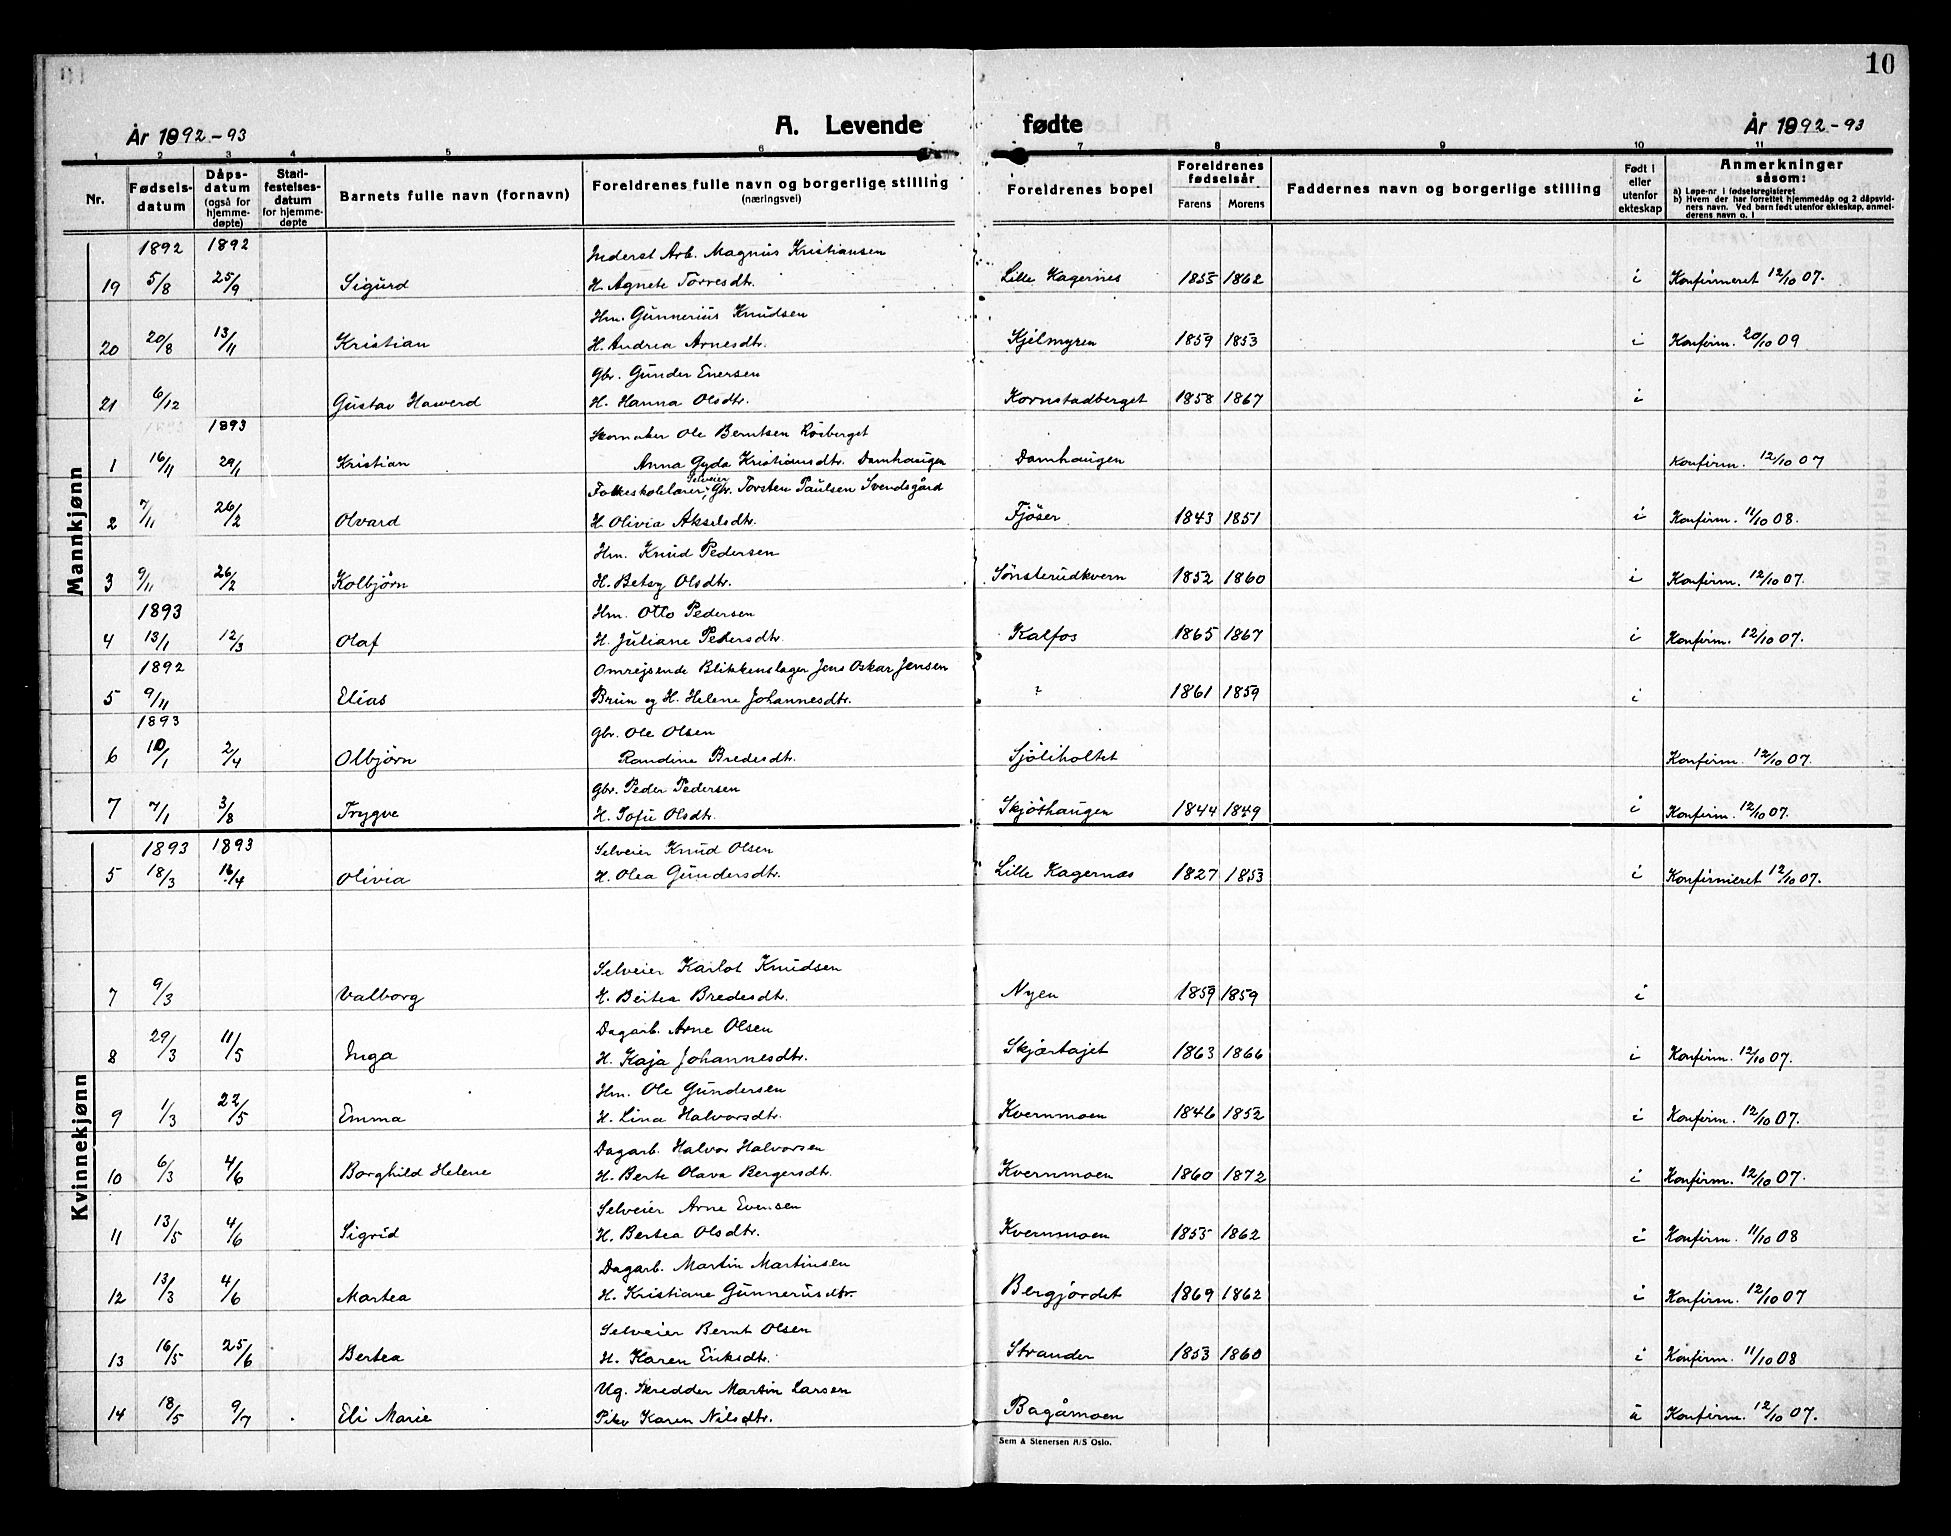 10
År 1892-93
A. Levende fødte
År 1892-93
1 2 3 4 5 6 7 8 9 10 11
Nr.
Fødsels-
datum
Dåps-
datum
(også for
hjemme-
døpte)
Stad-
festelses-
datum
for hjemme-
døpte
Barnets fulle navn (fornavn)
Foreldrenes fulle navn og borgerlige stilling
(næringsvei)
Foreldrenes bopel
Foreldrenes
fødselsår
Farens Morens
Faddernes navn og borgerlige stilling
Født i
eller
utenfor
ekteskap
Anmerkninger
såsom:
a) Løpe-nr. i fødselsregisteret
b) Hvem der har forrettet hjemmedåp og 2 dåpsvid-
ners navn. Ved barn født utenfor ekteskap, anmel-
derens navn o. l
Mannkjønn
1892 1892 Inderst Arb. Magnus Kristiansen
19 5/8 25/9 Sigurd H. Agnete Torresdtr. Lille Kagernes 1855 1862 i Konfirmeret 12/10 07.
Hm. Gunnerius Knudsen
20 20/8 13/11 Kristian H. Andrea Arnesdtr. Kjelmyren 1859 1853 i Konfirm. 20/10 09
Gbr. Gunder Enersen
21 6/12 Gustav Hawerd H. Hanna Olsdtr. Kornstadberget 1858 1867 i
1893 Skomaker Ole Berntsen Rösberget
1 16/11 29/1 Kristian Anna Gyda Kristiansdtr. Damhaugen Damhaugen Konfirm. 12/10 07
Folkeskolelærer, Selveier Gbr. Torsten Paulsen Svendsgård
2 7/11 26/2 Olvard H. Olivia Akselsdtr. Fjöser 1843 1851 i Konfirm. 11/10 08.
Hm. Knud Pedersen
3 9/11 26/2 Kolbjørn H. Betsy Olsdtr. Sönsterudkvern 1852 1860 i Konfirm. 12/10 07.
1893 Hm. Otto Pedersen
4 13/1 12/3 Olaf H. Juliane Pedersdtr. Kalfos 1865 1867 i Konfirm. 12/10 07.
1892 Omrejsende Blikkenslager Jens Oskar Jensen
5 9/11 Elias Brun og H. Helene Johannesdtr. ? 1861 1859 i
1893 Gbr. Ole Olsen
6 10/1 2/4 Olbjørn Randine Bredesdtr. Sjöliholtet Konfirm. 12/10 07.
Gbr. Peder Pedersen
7 7/1 3/8 Trygve H. Sofie Olsdtr. Skjöthaugen 1844 1849 i Konfirm. 12/10 07.
Kvinnekjønn
1893 1893 Selveier Knud Olsen
5 18/3 16/4 Olivia H. Olea Gundersdtr. Lille Kagernæs 1827 1853 i Konfirmeret 12/10 07.
Selveier Karlot Knudsen
7 9/3 Valborg H. Bertea Bredesdtr. Nyen 1859 1859 i
Dagarb. Arne Olsen
8 29/3 11/5 Inga H. Kaja Johannesdtr. Skjærtajet 1863 1866 i Konfirm. 12/10 07.
Hm. Ole Gundersen
9 1/3 22/5 Emma H. Lina Halvorsdtr. Kvernmoen 1846 1852 i Konfirm. 12/10 07.
Dagarb. Halvor Halvorsen
10 6/3 4/6 Borghild Helene H. Berte Olava Bergersdtr. Kvernmoen 1860 1872 i Konfirm. 12/10 07.
Selveier Arne Evensen
11 13/5 4/6 Sigrid H. Bertea Olsdtr. Kvernmoen 1855 1862 i Konfirm. 11/10 08
Dagarb. Martin Martinsen
12 13/3 4/6 Martea H. Kristiane Gunnerusdtr. Bergjordet 1869 1862 i Konfirm. 12/10 07
Selveier Bernt Olsen
13 16/5 25/6 Bertea H. Karen Eriksdtr. Strander 1853 1860 i Konfirm. 11/10 08
Ug. Skredder Martin Larsen
14 18/5 9/7 Eli Marie Pike Karen Nilsdtr. Bagåmoen u Konfirm. 12/10 07.
Sem & Stenersen A/S Oslo.